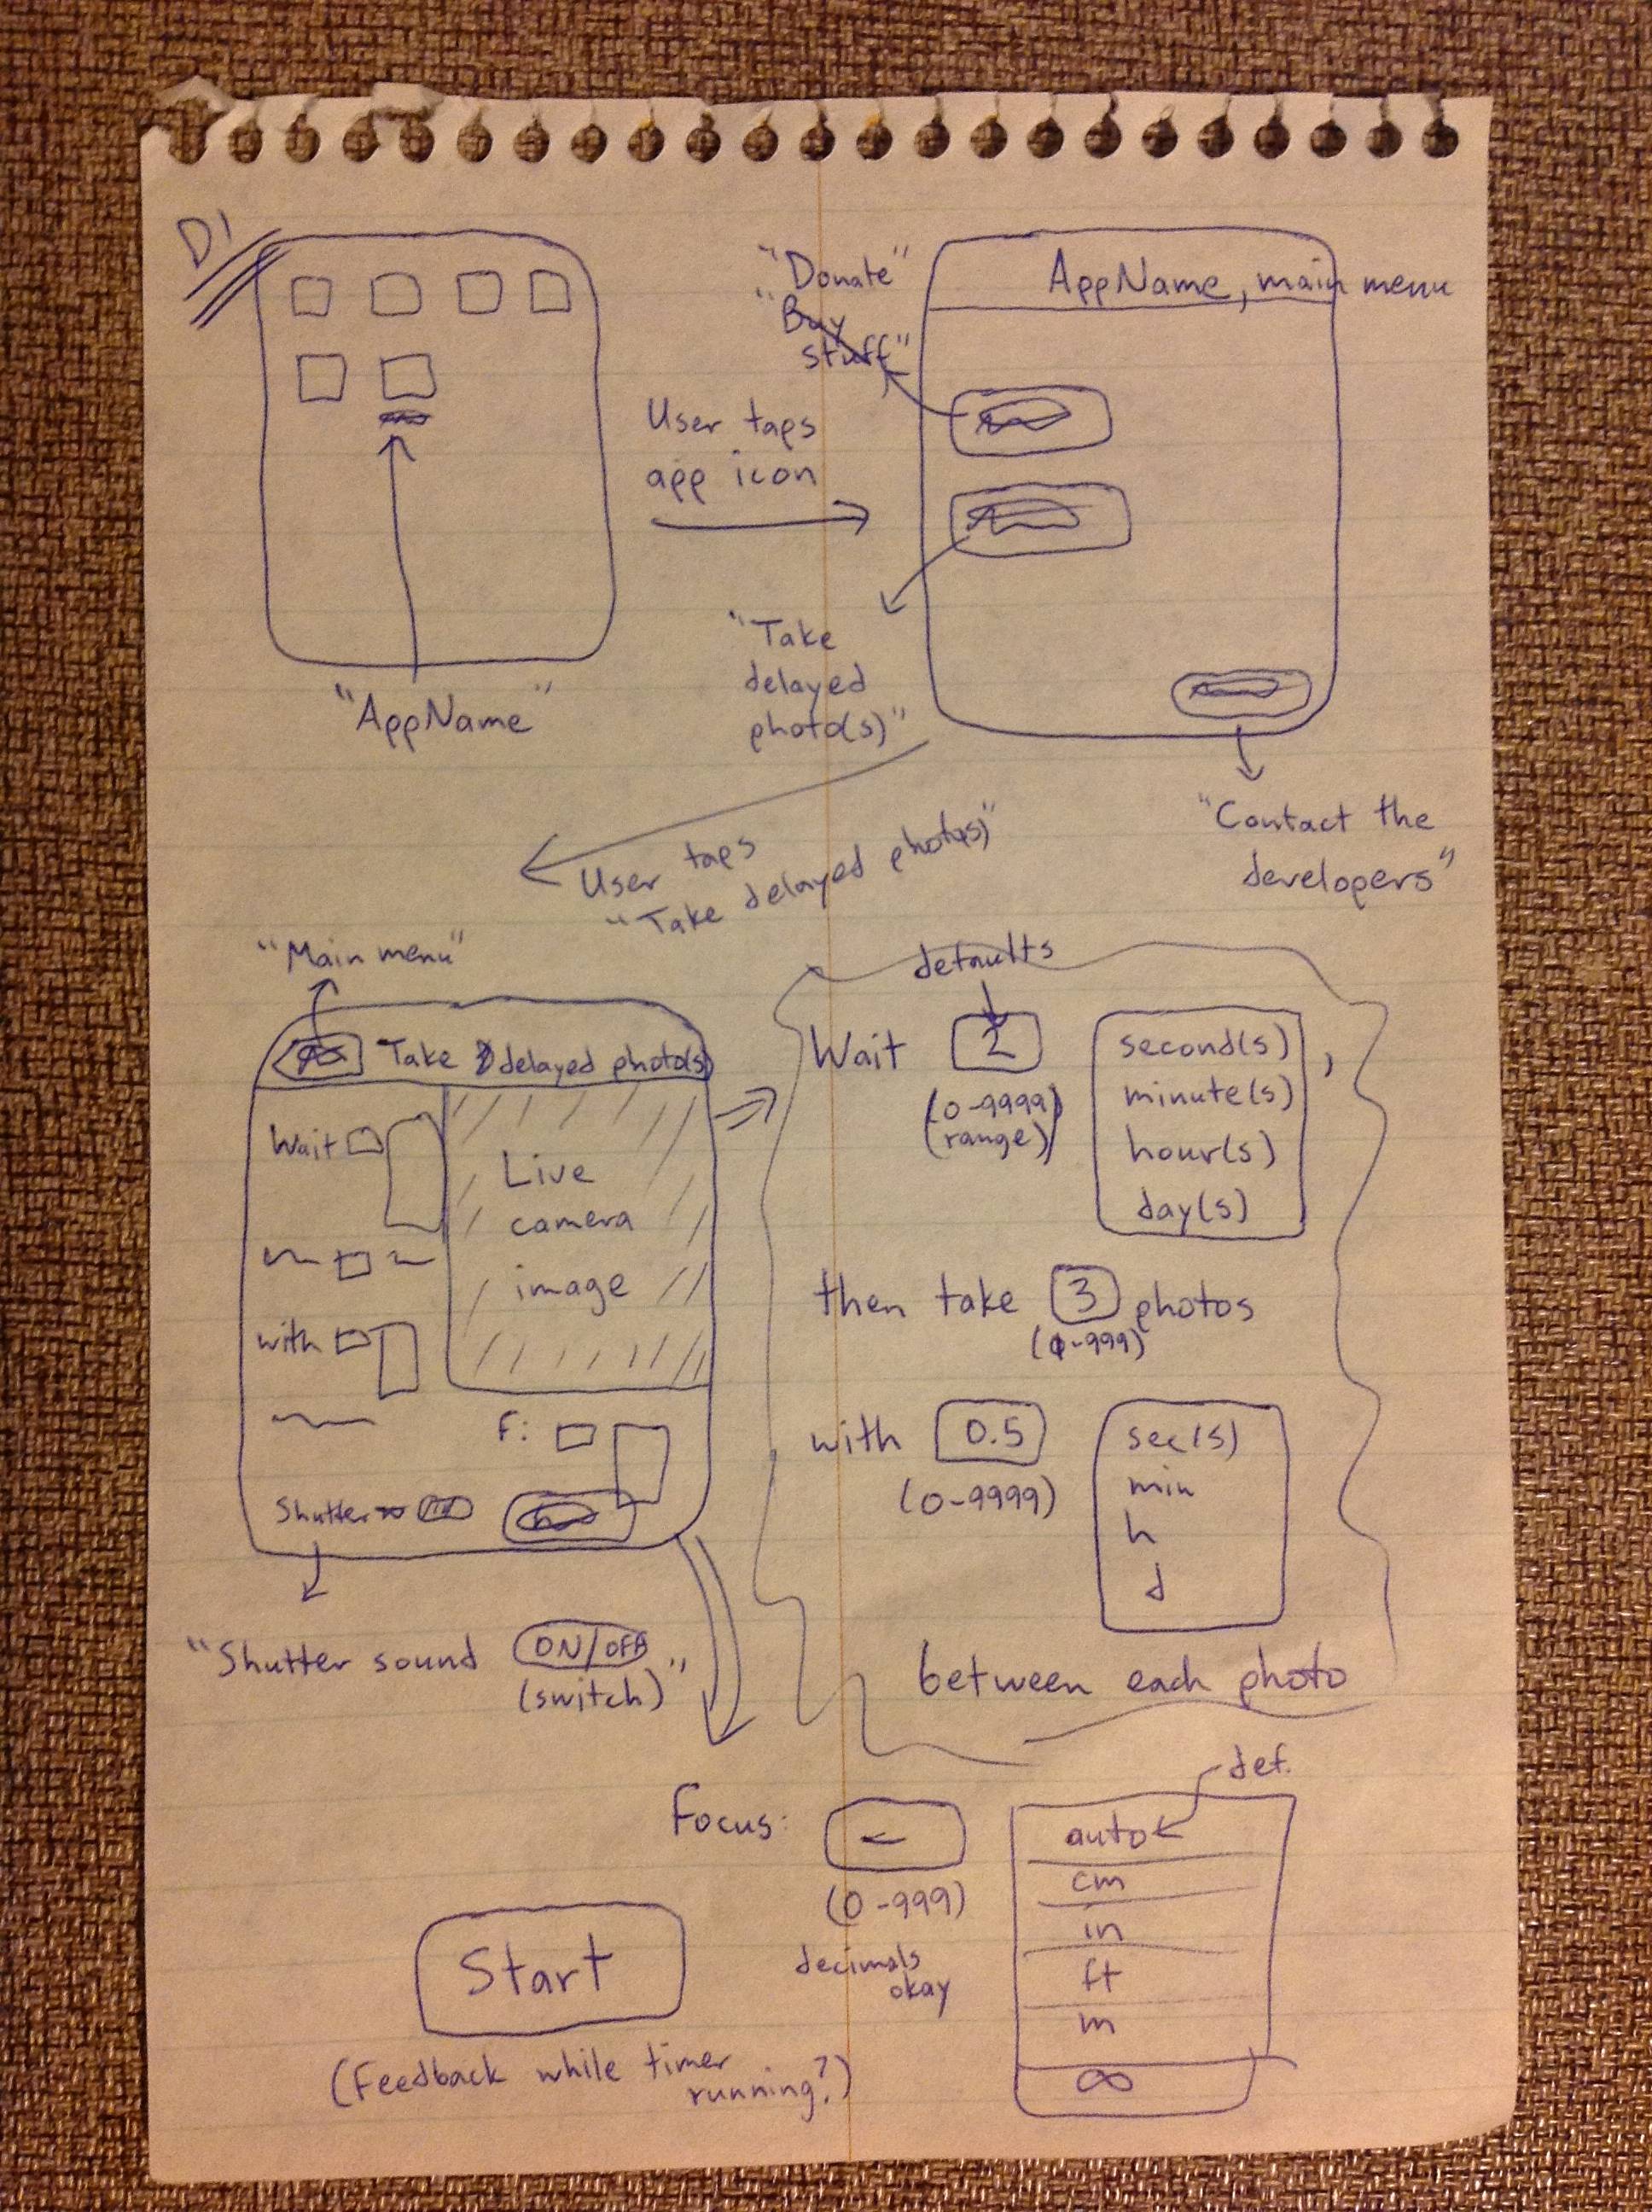 D1
"Donate"
"Buy
stuff"
AppName, main menu
User taps
app icon
"AppName"
"Take
delayed
photo(s)"
"Contact the
developers"
User taps
"Take delayed photo(s)"
"Main menu"
Take delayed photo(s)
Wait
Live
camera
image
with
F:
Shutter
"Shutter sound ON/OFF
(switch)"
defaults
Wait 2 second(s),
(0-9999) minute(s)
(range) hour(s)
day(s)
then take 3 photos
(0-999)
with 0.5 sec(s)
(0-9999) min
h
d
between each photo
def.
Focus: - auto
(0-999) cm
decimals in
okay ft
m
∞
Start
(Feedback while timer
running?)